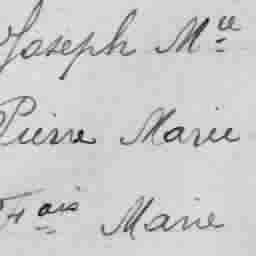 Joseph Mie
Pierre Marie
Fçois Marie